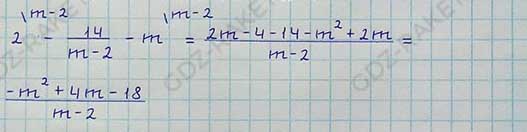 2^{\m-2} - \frac{14}{m-2} - m^{\m-2} = \frac{2m-4-14-m^2+2m}{m-2} =
\frac{-m^2+4m-18}{m-2}